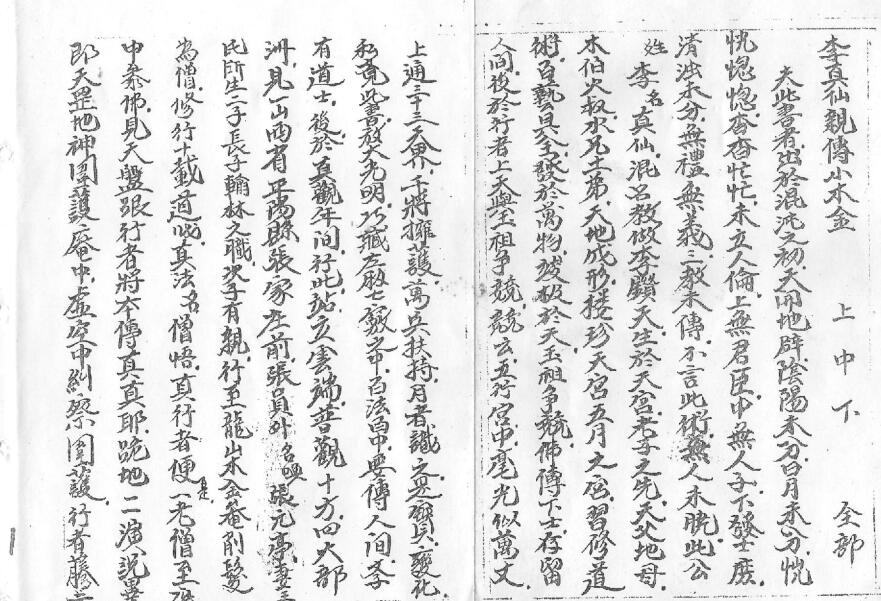 李真仙親傳小木金 上中下 全部
夫此書者出於混沌之初天開地辟陰陽未分日月未分恍
恍惚惚杳杳忙忙未立人倫上無君臣中無人子下發士庶
清浊未分無禮無義三教未傳不言此術無人未曉此公
姓李名真仙混名教做李顯天生於天宮老子之先天父地母
木伯火叔水兄土弟天地成形 天宮五月之 習修道
術百藝具全發於萬物 於天玉祖争競佛傳下士存留
人间後於行者上天與玉祖争競競云五行宮中毫光似萬丈
上通三十三天界千將擁護萬兵扶持月者識之是寶貝變化
私 此書放大光明乃藏在 之中百法 中 傳人间李
有道士後於貞觀年间行此站立雲端普觀十方四大部
洲見一山西省平陽縣張家在前張員外名喚張元亭妻王
氏所生二子長子翰林之職次子有親行至龍山木金菴削髮
為僧修行十載道此真法名僧悟真行者便一老僧走至
中 佛見天盤跟行者將本傳真真耶跪地二演說畢
即天罡地神圍護庵中虛空中糾察圍護行者